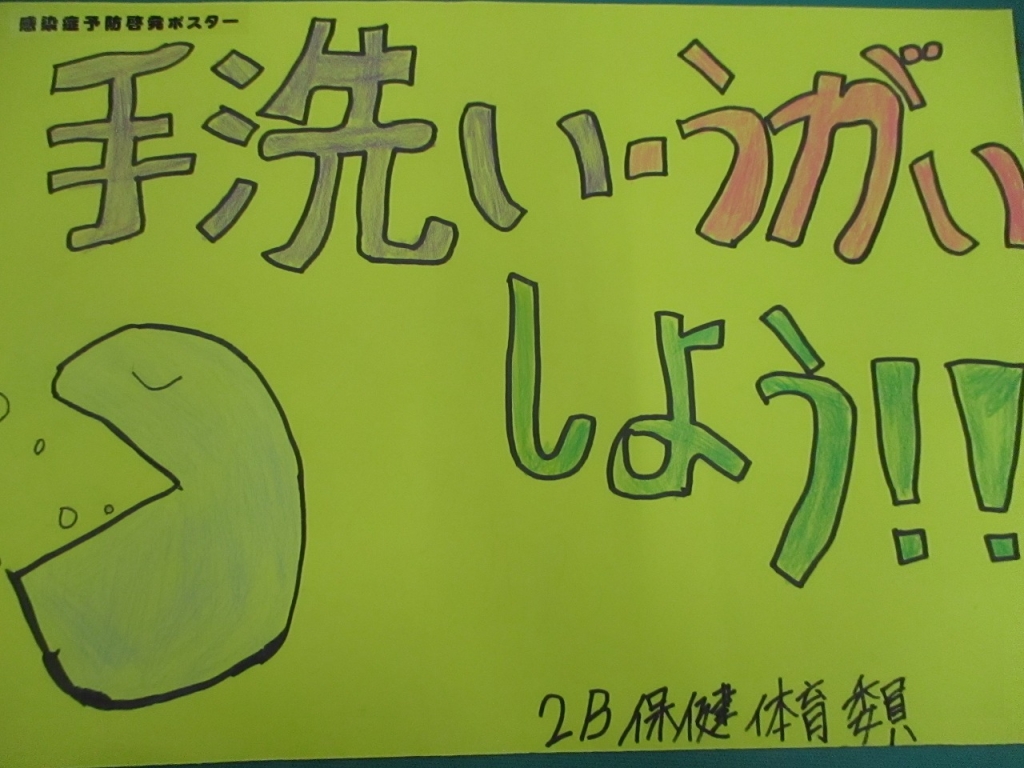 感染症予防啓発ポスター
手洗い・うがい
しよう!!
2B保健体育委員